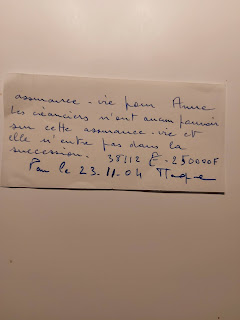 assurance-vie pour Anne
Les créanciers n'ont aucun pouvoir
sur cette assurance-vie et
elle n'entre pas dans la
succession. 38112 € - 250000F
le 23.11.04